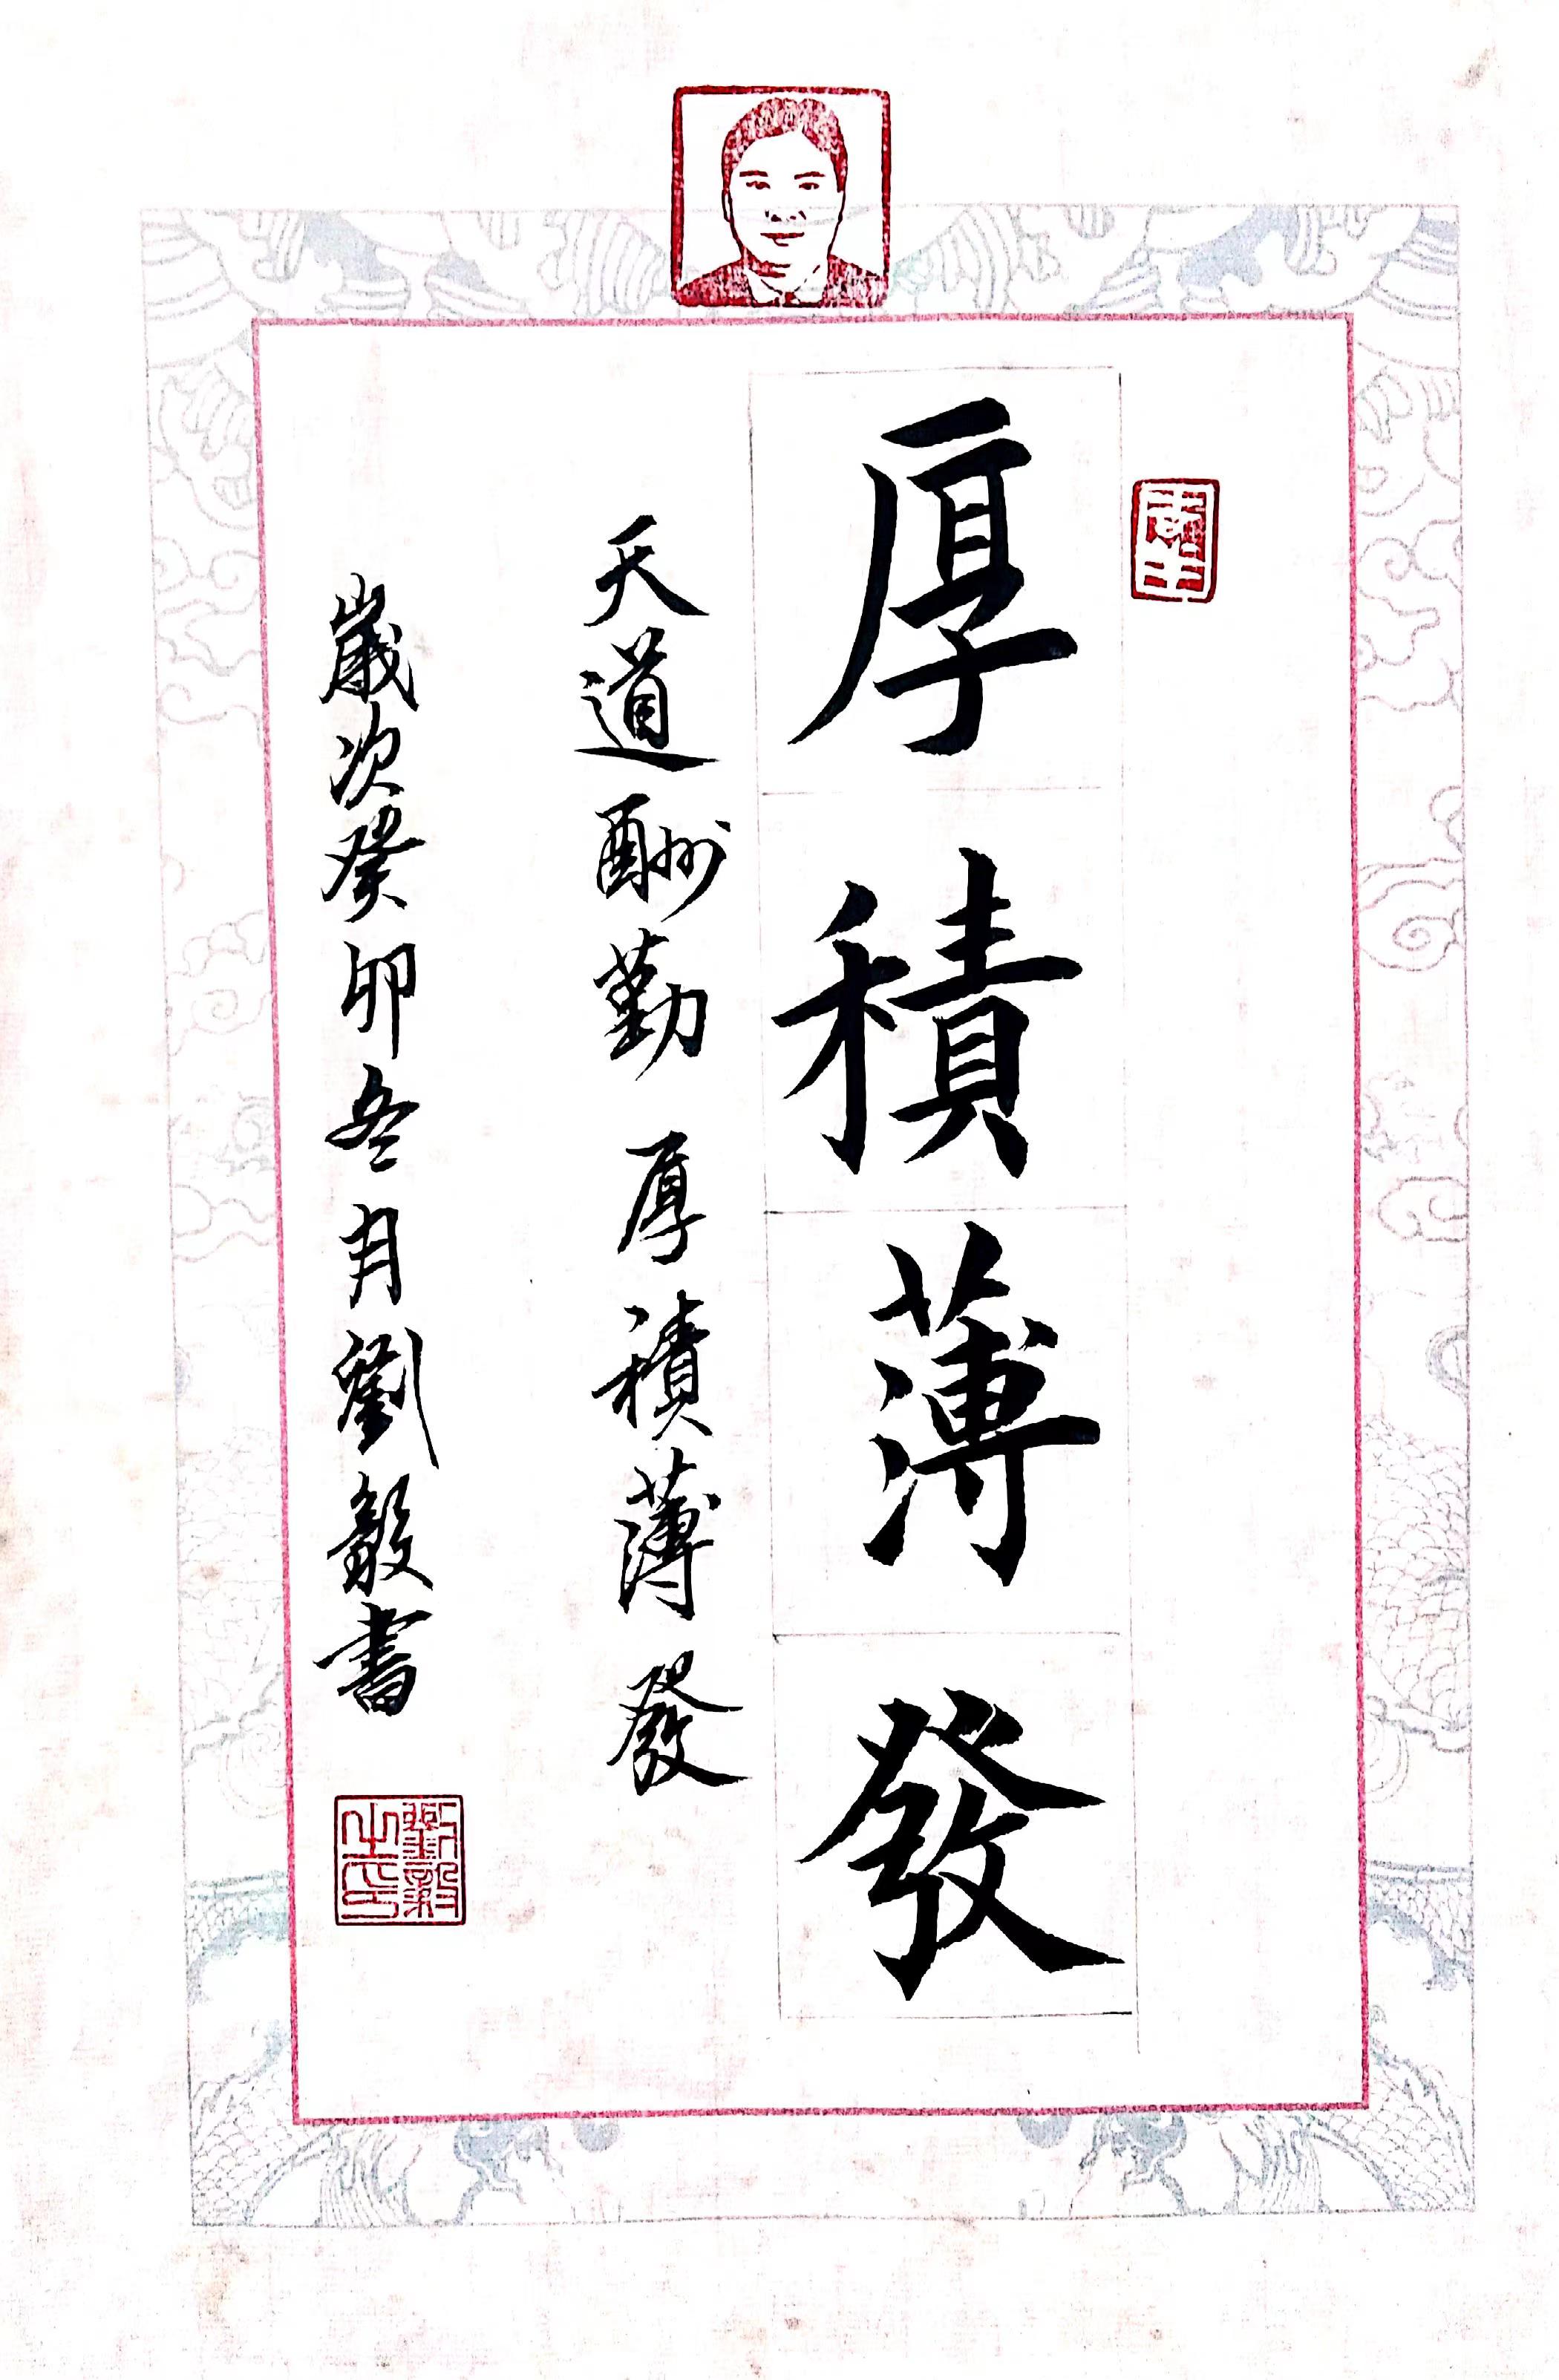 厚積薄發
天道酬勤 厚積薄發
歲次癸卯冬月劉毅書
劉毅之印